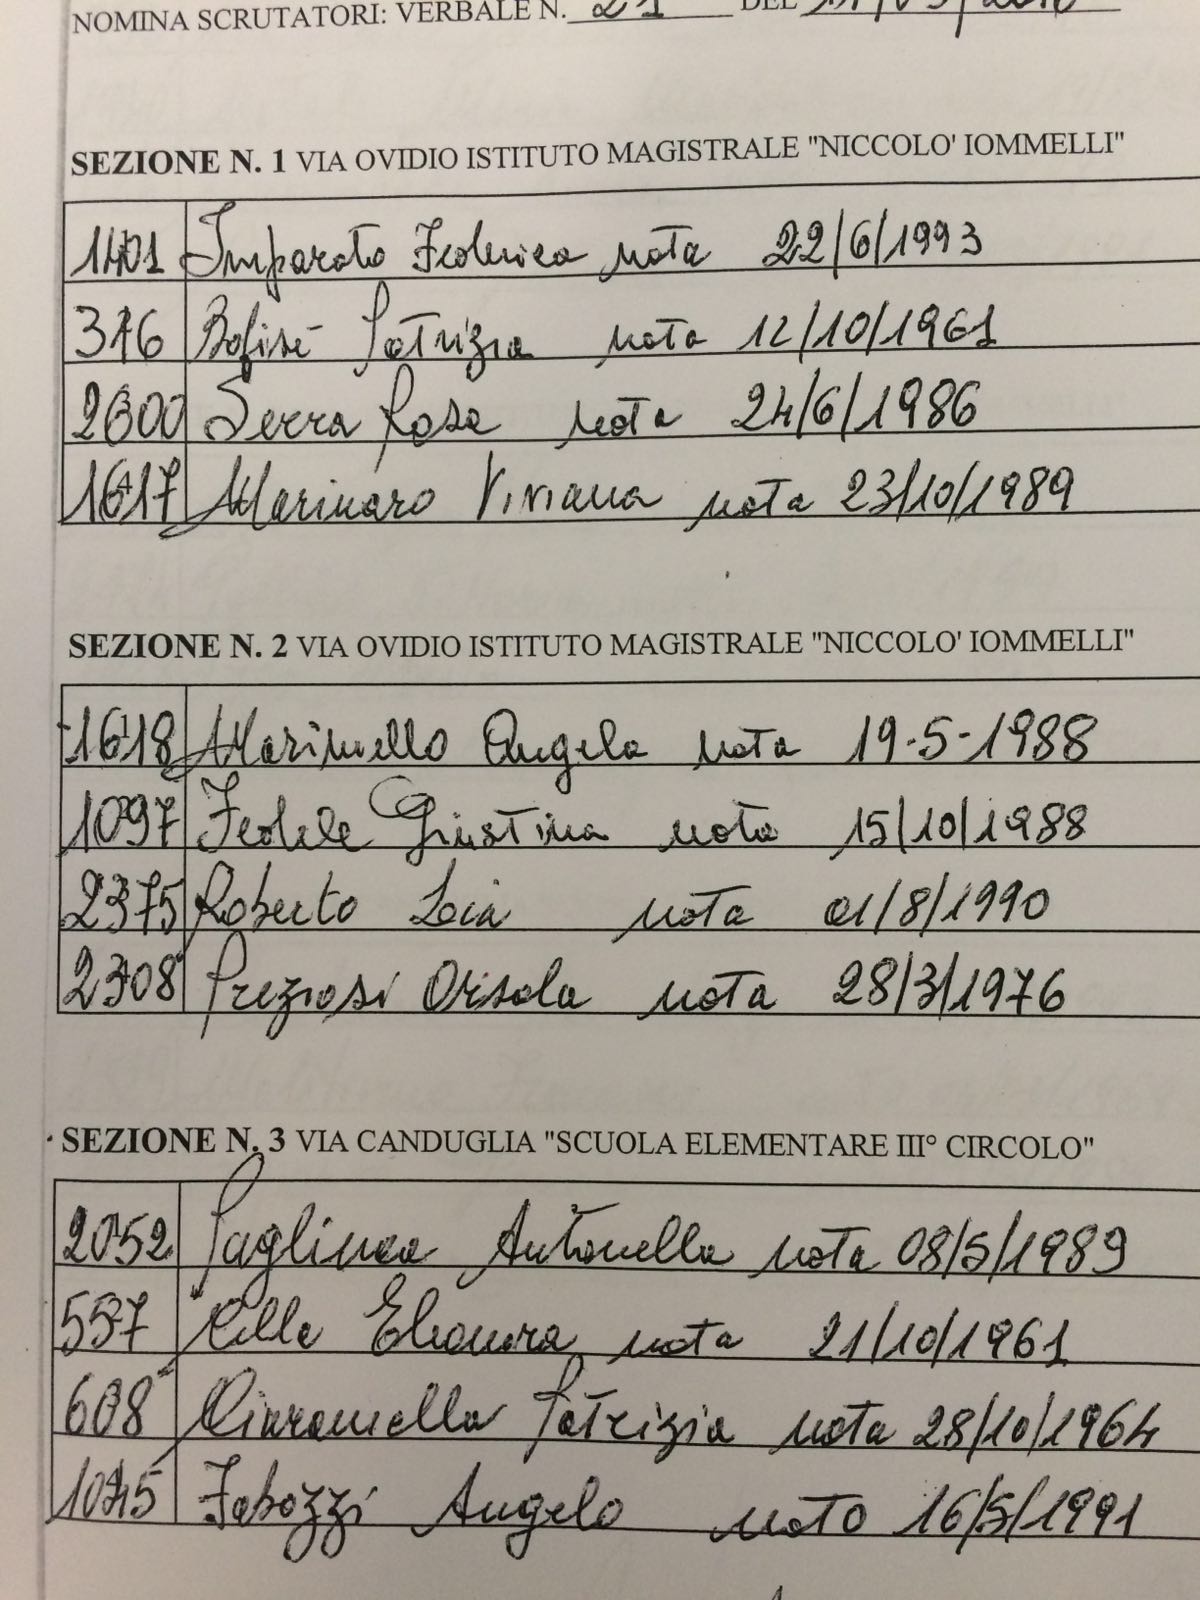 NOMINA SCRUTATORI: VERBALE N. 21 DEL
SEZIONE N. 1 VIA OVIDIO ISTITUTO MAGISTRALE "NICCOLO' IOMMELLI"
1401 Imparato Federica nata 22/6/1993
316 Patrizia nata 12/10/1961
2600 Serra Rosa nata 24/6/1986
1617 Marinaro Viviana nata 23/10/1989
SEZIONE N. 2 VIA OVIDIO ISTITUTO MAGISTRALE "NICCOLO' IOMMELLI"
1618 Mariniello Angela nata 19-5-1988
1097 Fedele Giustina nata 15/10/1988
2375 Roberto Lecia nata 01/8/1990
2308 Preziosi Orsola nata 28/3/1976
SEZIONE N. 3 VIA CANDUGLIA "SCUOLA ELEMENTARE III° CIRCOLO"
2052 Pagliuca Antonella nata 08/5/1989
557 Cille Eleonora nata 21/10/1961
608 Ciaramella Patrizia nata 28/10/1964
1045 Fabozzi Angelo nato 16/5/1991